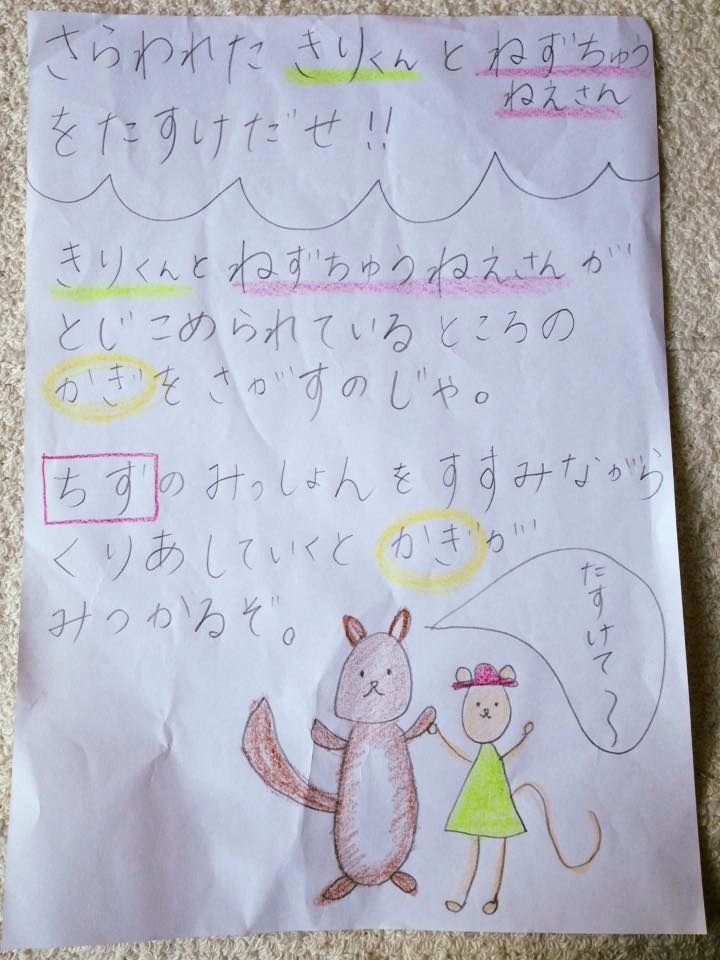 さらわれた きりくん と ねずちゅう
ねえさん
をたすけだせ!!
きりくんと ねずちゅうねえさんが
とじこめられている ところの
かぎを さがすのじゃ。
ちずの みっしょんを すすみながら
くりあしていくと かぎが
みつかるぞ。
たすけて～